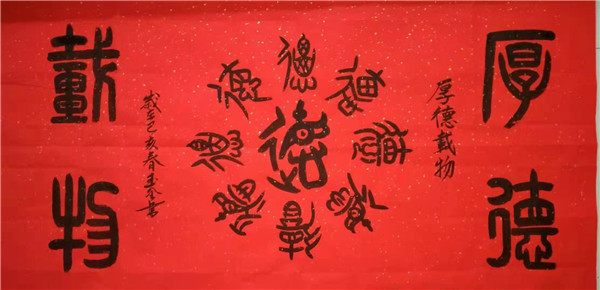 厚德
厚德載物
德
德
德
德
德
德
德
德
德
己亥春
載物